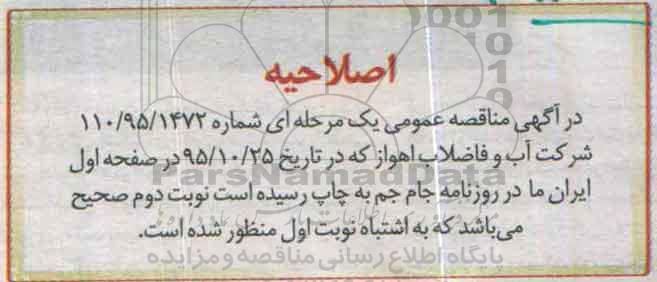 اصلاحیه
در آگهی مناقصه عمومی یک مرحله ای شماره ۱۱۰/۹۵/۱۴۷۲
شرکت آب و فاضلاب اهواز که در تاریخ ۹۵/۱۰/۲۵ در صفحه اول
ParsNamadData
ایران ما در روزنامه جام جم به چاپ رسیده است نوبت دوم صحیح
می‌باشد که به اشتباه نوبت اول منظور شده است.
پایگاه اطلاع رسانی مناقصه و مزایده